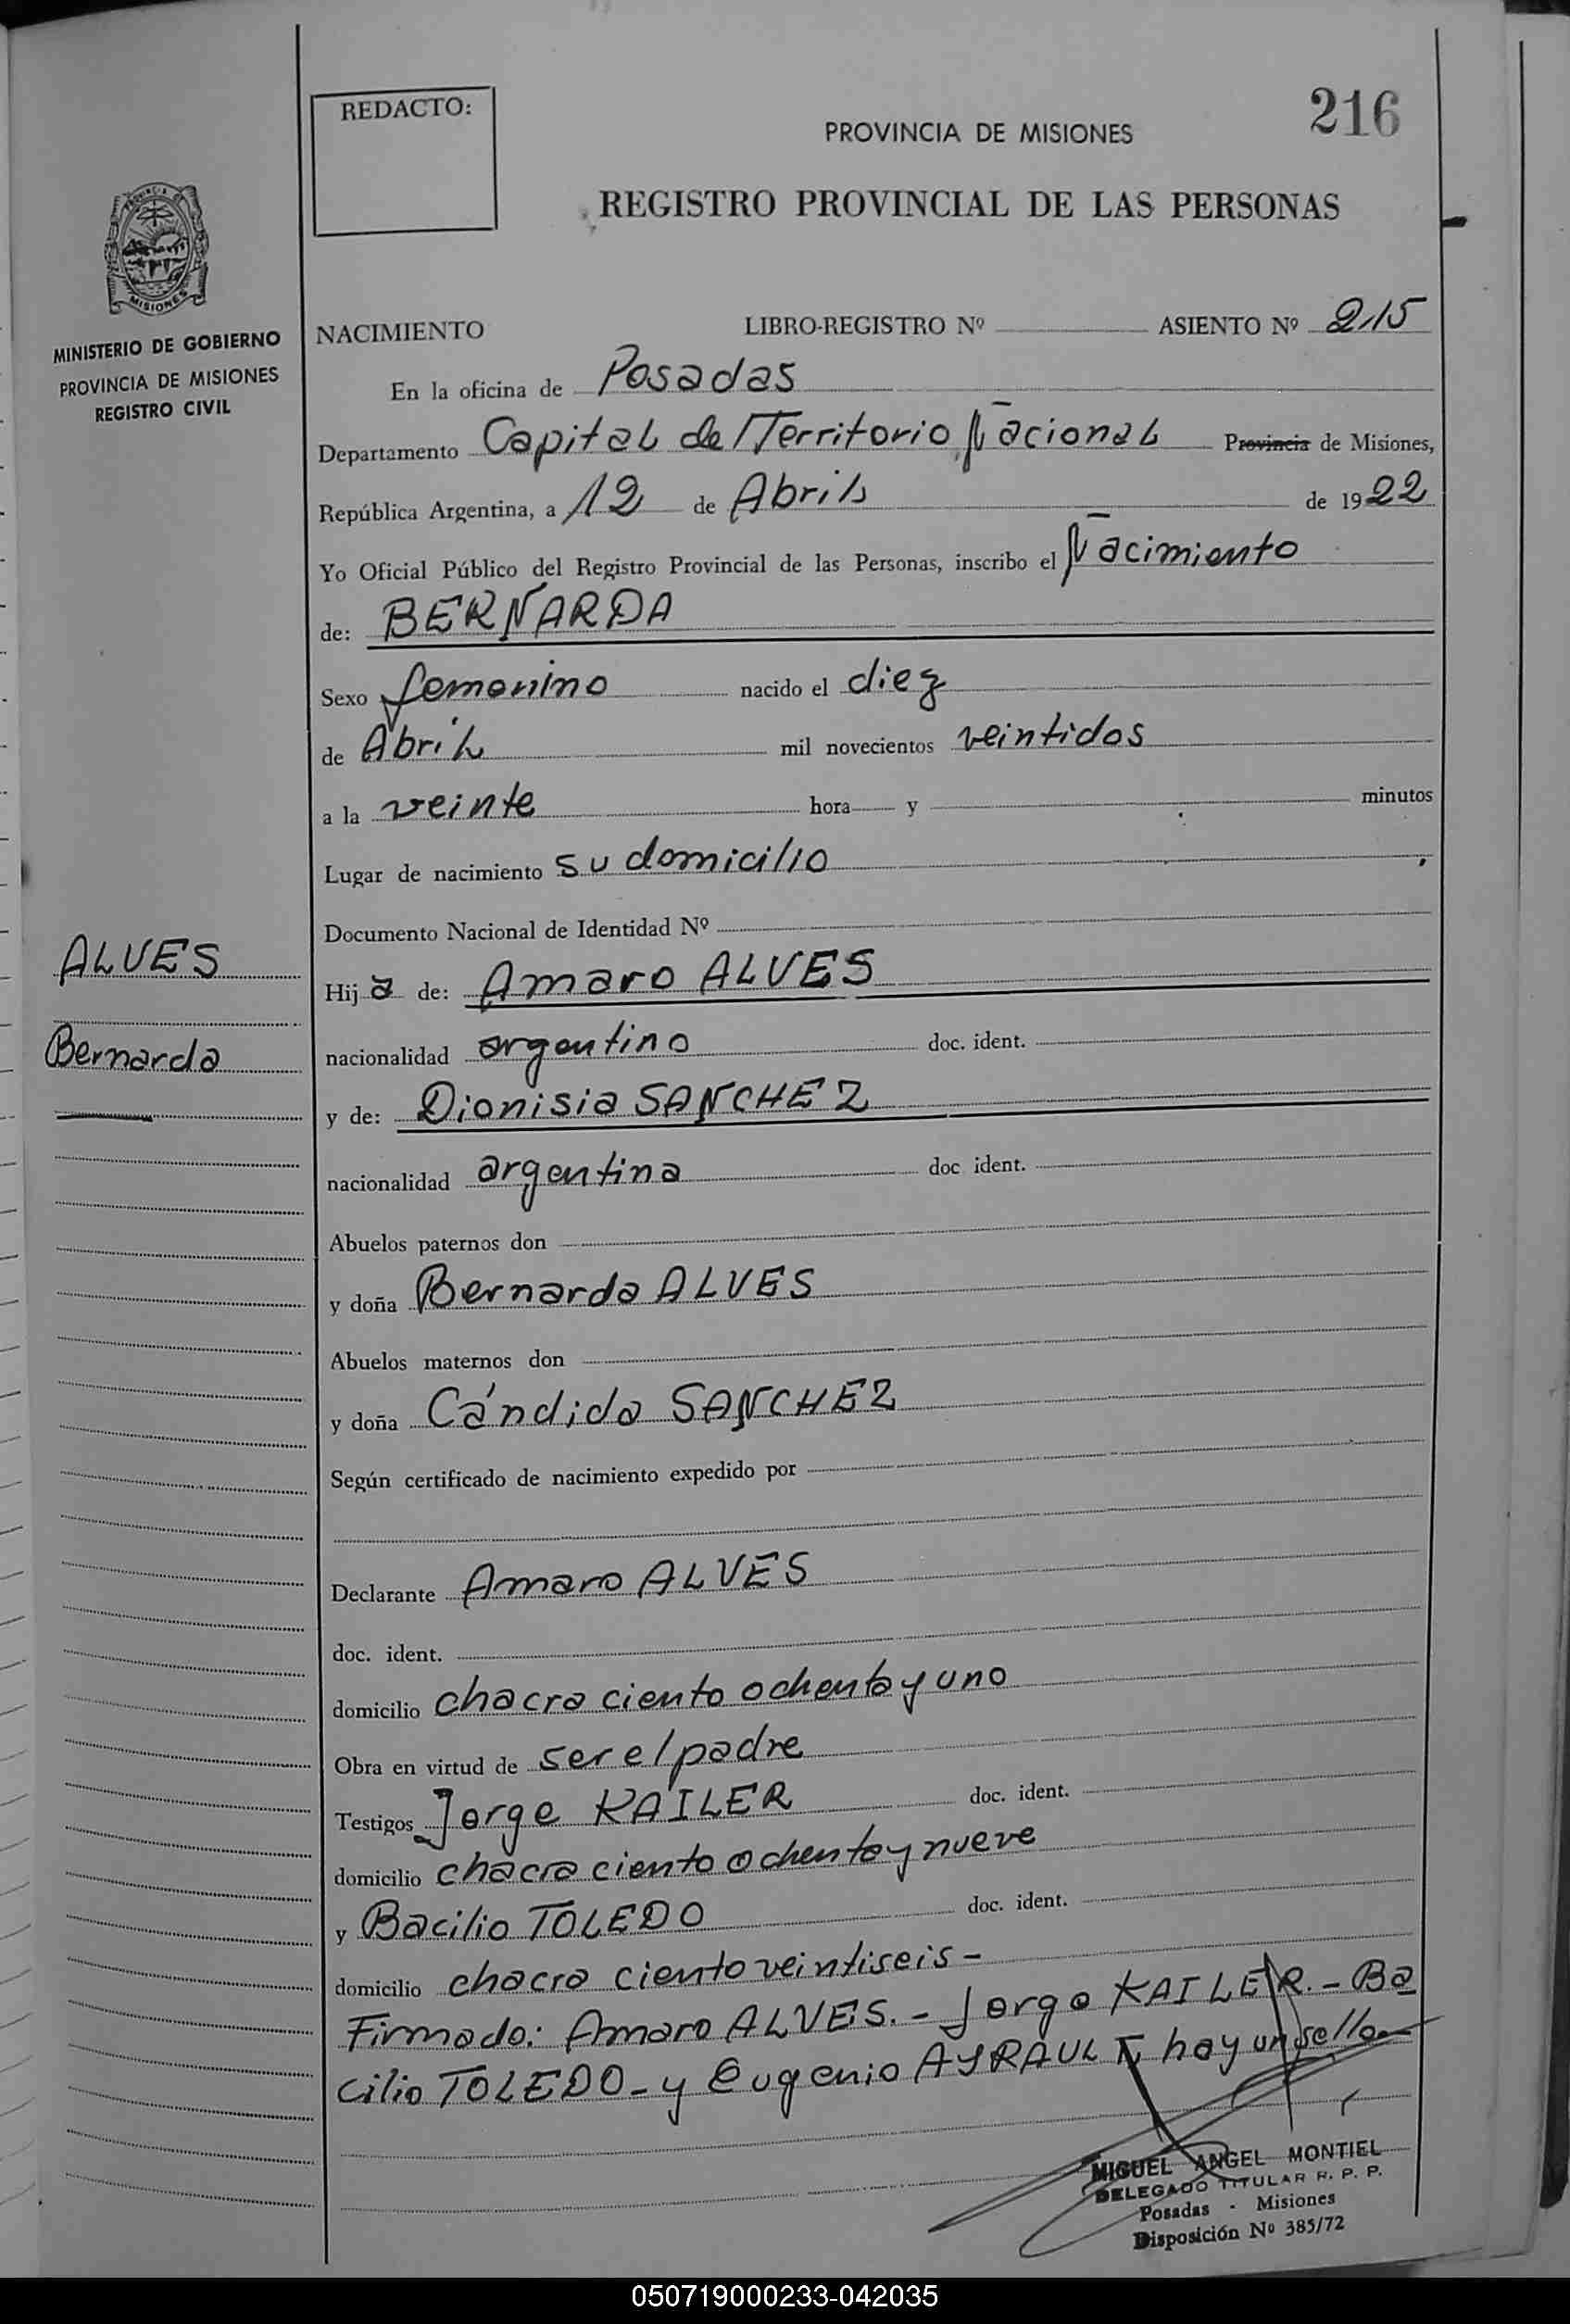 REDACTO:
216
PROVINCIA DE MISIONES
REGISTRO PROVINCIAL DE LAS PERSONAS
PROVINCIA
MISIONES
MINISTERIO DE GOBIERNO
PROVINCIA DE MISIONES
REGISTRO CIVIL
NACIMIENTO LIBRO-REGISTRO Nº ASIENTO Nº 215
En la oficina de Posadas
Departamento Capital del Territorio Nacional Provincia de Misiones,
República Argentina, a 12 de Abril de 1922
Yo Oficial Público del Registro Provincial de las Personas, inscribo el Nacimiento
de: BERNARDA
Sexo femenino nacido el diez
de Abril mil novecientos veintidos
a la veinte hora y minutos
Lugar de nacimiento su domicilio
Documento Nacional de Identidad Nº
ALVES
Hija de: Amaro ALVES
Bernarda
nacionalidad argentino doc. ident.
y de: Dionisia SANCHEZ
nacionalidad argentina doc ident.
Abuelos paternos don
y doña Bernarda ALVES
Abuelos maternos don
y doña Cándida SANCHEZ
Según certificado de nacimiento expedido por
Declarante Amaro ALVES
doc. ident.
domicilio chacra ciento ochenta y uno
Obra en virtud de ser el padre
Testigos Jorge KAILER doc. ident.
domicilio chacra ciento ochenta y nueve
y Bacilio TOLEDO doc. ident.
domicilio chacra ciento veintiseis-
Firmado: Amaro ALVES.- Jorge KAILER.- Ba
cilio TOLEDO- y Eugenio AYRAULT, hay un sello-
MIGUEL ANGEL MONTIEL
DELEGADO TITULAR R. P. P.
Posadas - Misiones
Disposición Nº 385/72
050719000233-042035